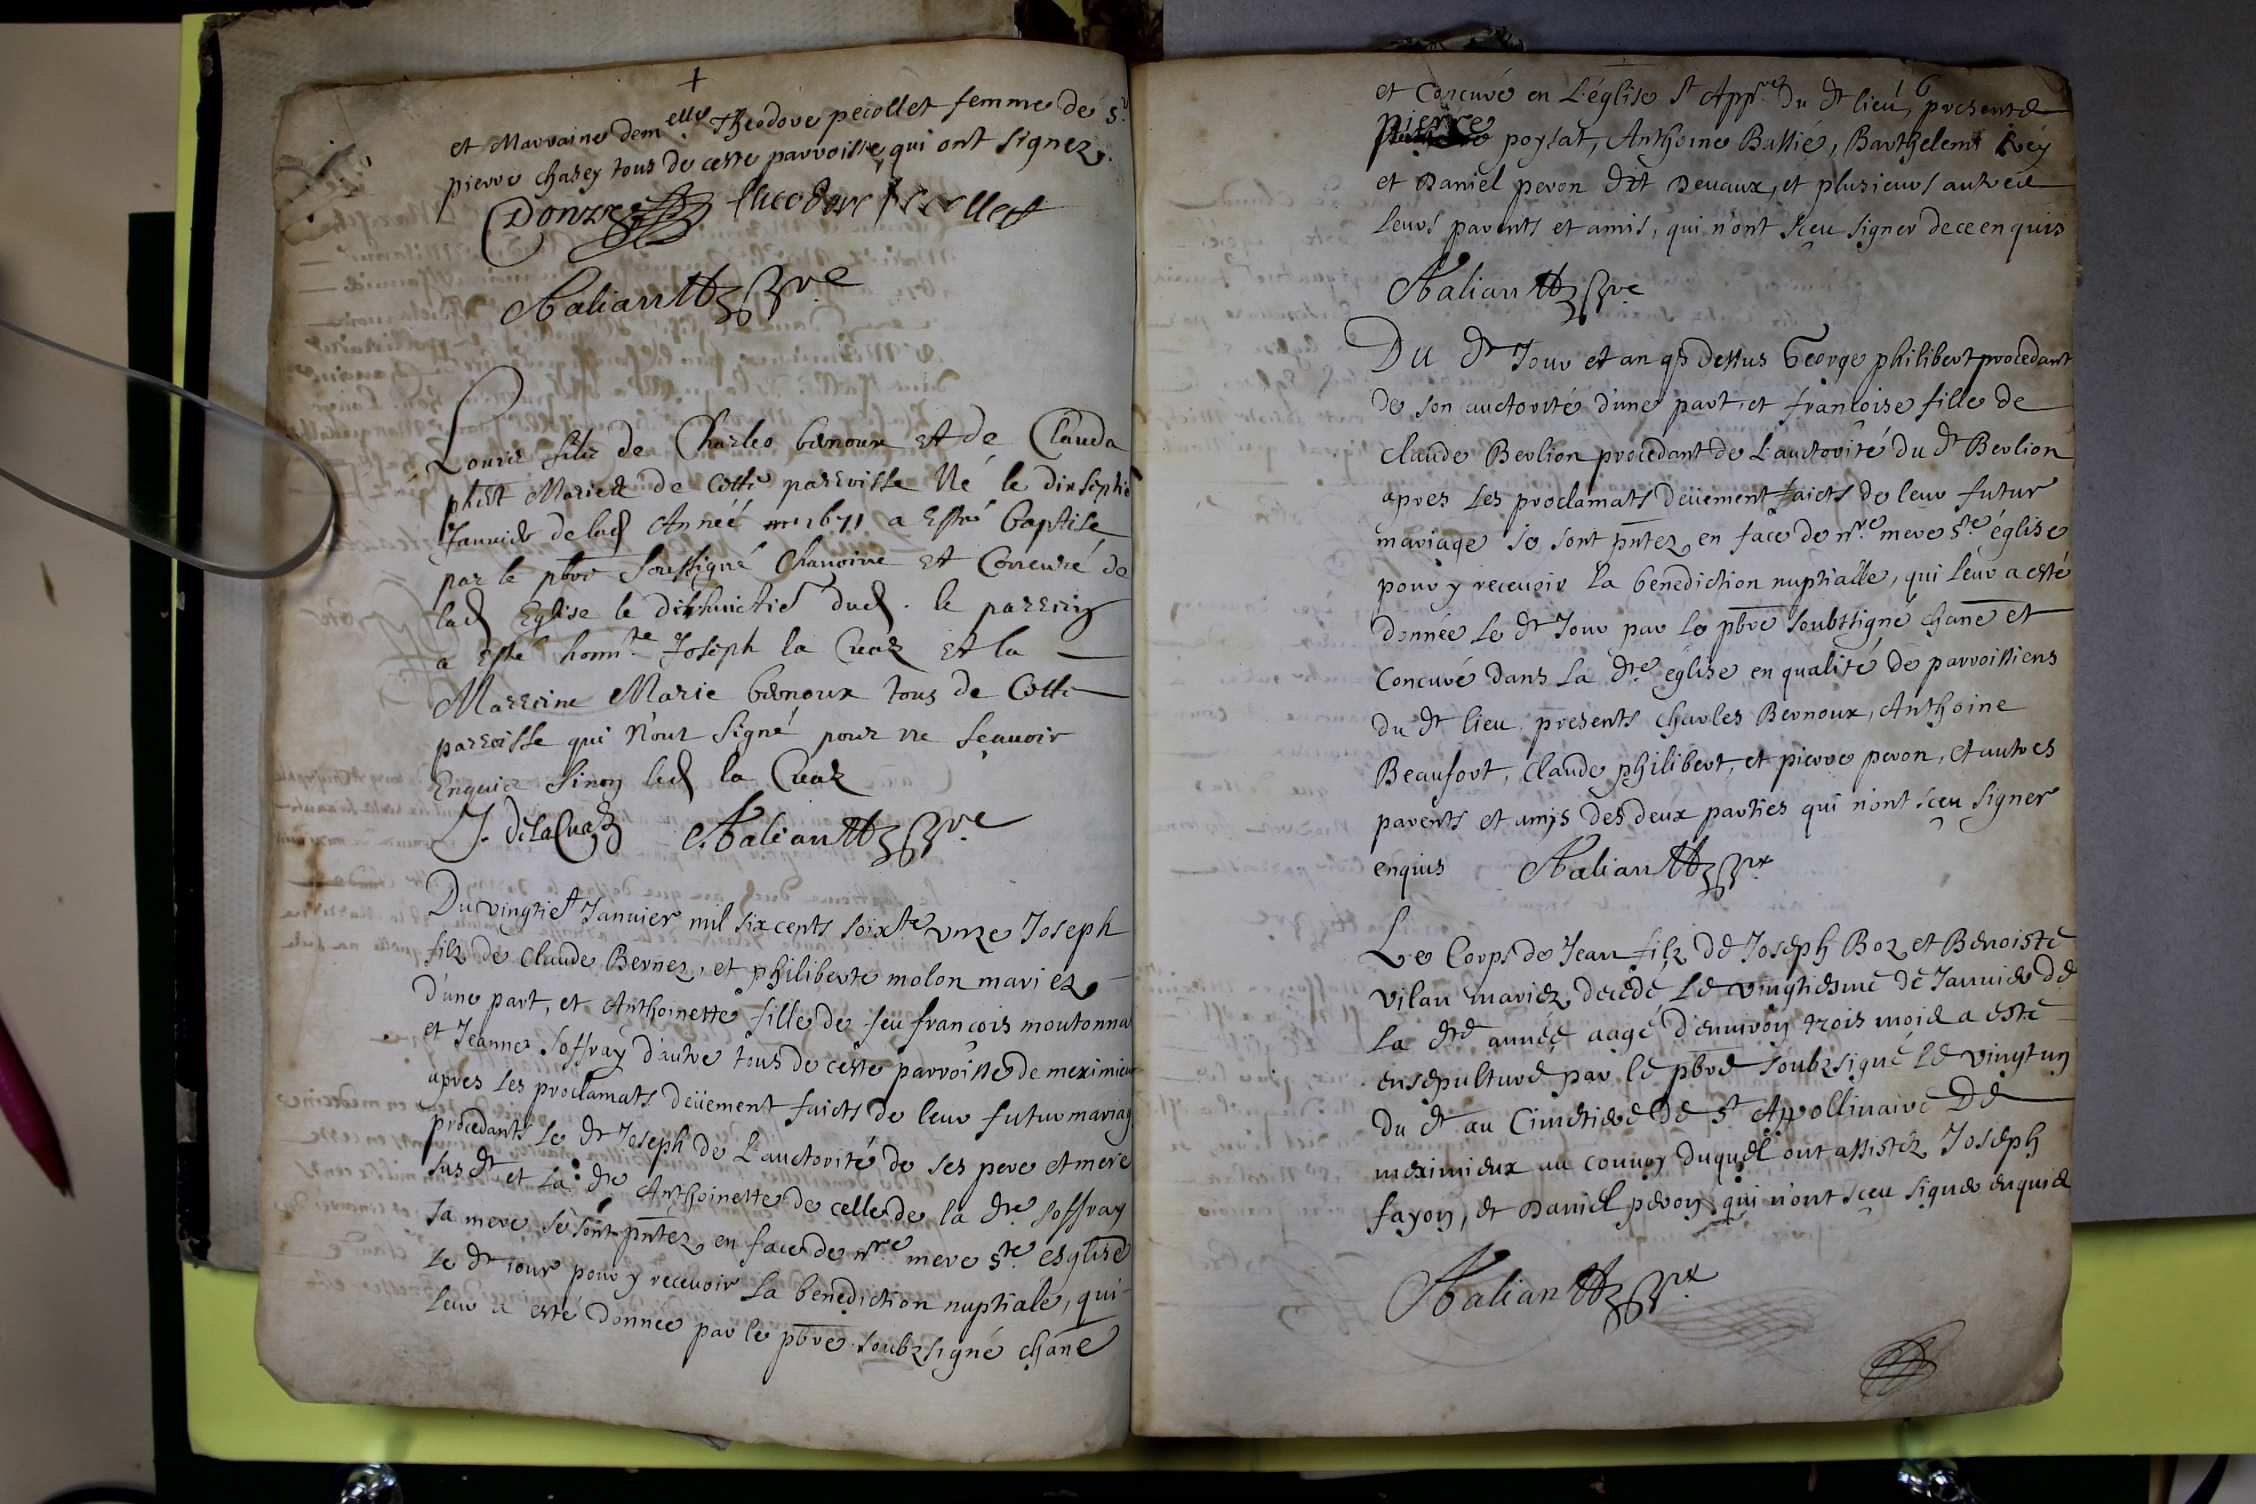 et Marraine dem.elle Theodore pecollet femme de s.r
pierre chasey tous de ceste parroisse, qui ont signez.
Donzel Theodore pecollect
Louis filz de Charles bernoux et de Clauda
phlib.t Mariez de Cette parroisse Né le dixseptie
Janvier de lad Année 1671 a Esté baptisé
par le pbre soussigné Chanoine et Concuré de
lad Eglise le dixhuictie dud. le parrein
a Esté honn.te Joseph la Cuaz et la
Marreine Marie bernoux tous de Cette
parroisse qui n'ont signé pour ne sçauoir
Enquis sinon led la Cuaz
J. DelaCuaz
Du vingtie Januier mil six cents soixte vnze Joseph
filz de Claude Bernez, et philiberte molon mariez
d'une part, et Anthoinette fille de feu françois moutonna
et Jeanne soffray d'autre tous de ceste parroisse de meximieux
apres les proclamats deüement faicts de leur futur mariag
procedants le dt Joseph de L'auctorité de ses pere et mere
susdt et la dte Anthoinette de celle de la dte soffray
sa mere se sont pntez en face de nre mere ste esglise
le dt iour pour y receuoir la benediction nuptiale, qui
leur a esté donnée par le pbre soubzsigné chane
6
et Concuré en L'église St App.re du dt lieu, presents
pierre poysat, Anthoine Bassié, Barthelemi Rey
et Daniel peron dit Deuaux, et plusieurs autres
leurs parents et amis, qui n'ont sceu signer de ce enquis
Du dt Jour et an q dessus George philibert procedant
de son auctorité d'une part, et françoise fille de
claude Berlion procedant de L'auctorité du dt Berlion
apres les proclamats deüement faicts de leur futur
mariage se sont pntez en face de nre mere ste église
pour y receuoir la benediction nuptialle, qui leur a esté
donnée le dt Jour par le pbre soubssigné chane et
concuré dans la dte église en qualité de parroissiens
du dt lieu presents charles Bernoux, Anthoine
Beaufort, claude philibert, et pierre peron, et autres
parents et amis des deux parties qui n'ont sceu signer
enquis
Le Corps de Jean filz de Joseph Boz et Benoiste
vilan mariez decedé Le vingtiesme de Januier de
la dte année aagé d'enuiron trois mois a esté
ensepulturé par le pbre soubzsigné le vingtun
du dt au Cimetiere de St Appollinaire De
meximieux au conuoy duquel ont assistéz Joseph
fayon, et Daniel peron qui n'ont sceu signer enquis